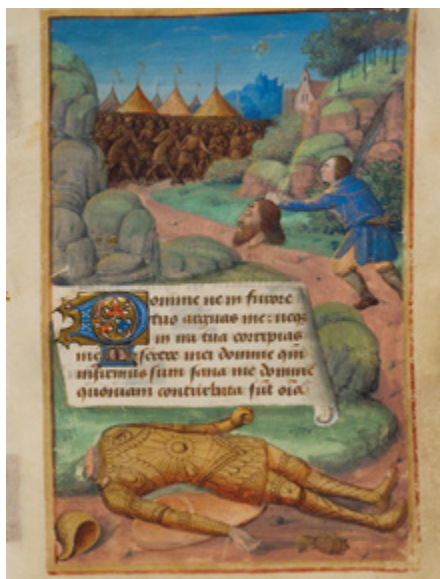 Domine ne in furore
tuo arguas me: neqȝ
in ira tua corripias
me Miserere mei domine qm̄
infirmus sum sana me domine
quoniam conturbata sūt oīa